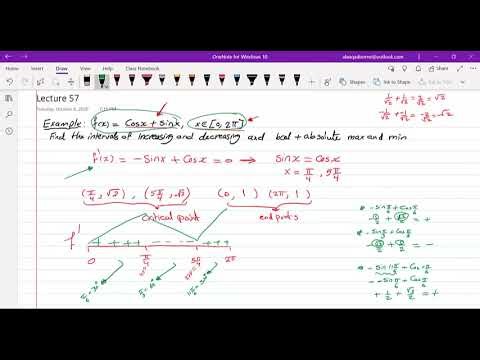 OneNote for Windows 10
File Home Insert Draw View Help Class Notebook
Lecture 57
Tuesday, October 6, 2020
Example: f(x) = Cosx + Sinx, x∈[0, 2π]
Find the intervals of increasing and decreasing and local + absolute max and min
f'(x) = -Sinx + Cosx = 0 → Sinx = Cosx
x = π/4, 5π/4
(π/4, √2), (5π/4, -√2) (0, 1) (2π, 1)
critical point end points
f'
+ + + + - - - - + + +
0 π/4 5π/4 2π
1/√2 + 1/√2 = 2/√2 = √2
-1/√2 + -1/√2 = -2/√2 = -√2
-Sin π/6 + Cos π/6
-1/2 + √3/2 = +
-Sin π/3 + Cos π/3
-√3/2 + 1/2 = -
-Sin 11π/6 + Cos π/6
- -Sin π/6 + Cos π/6
+ 1/2 + √3/2 = +